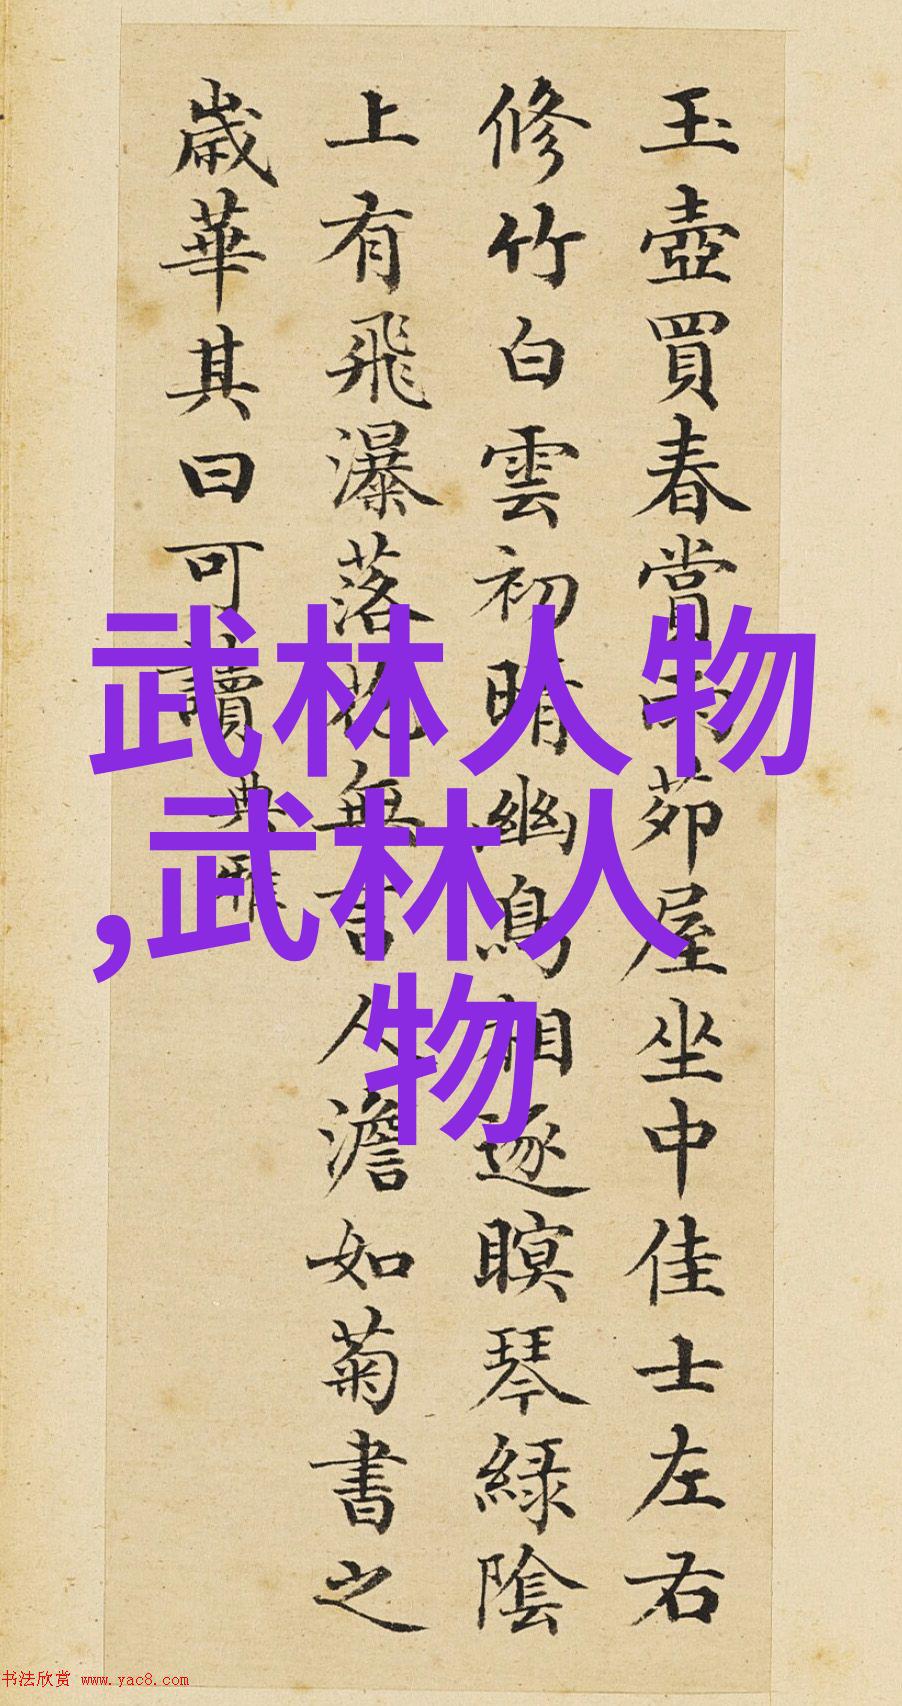 玉壺買春賞雨茆屋坐中佳士左右
修竹白雲初晴幽鳥相逐瞑琴綠陰
上有飛瀑落花無言人澹如菊書之
歲華其曰可讀
典雅
武林人物
,武林人
物
书法欣赏 www.yac8.com